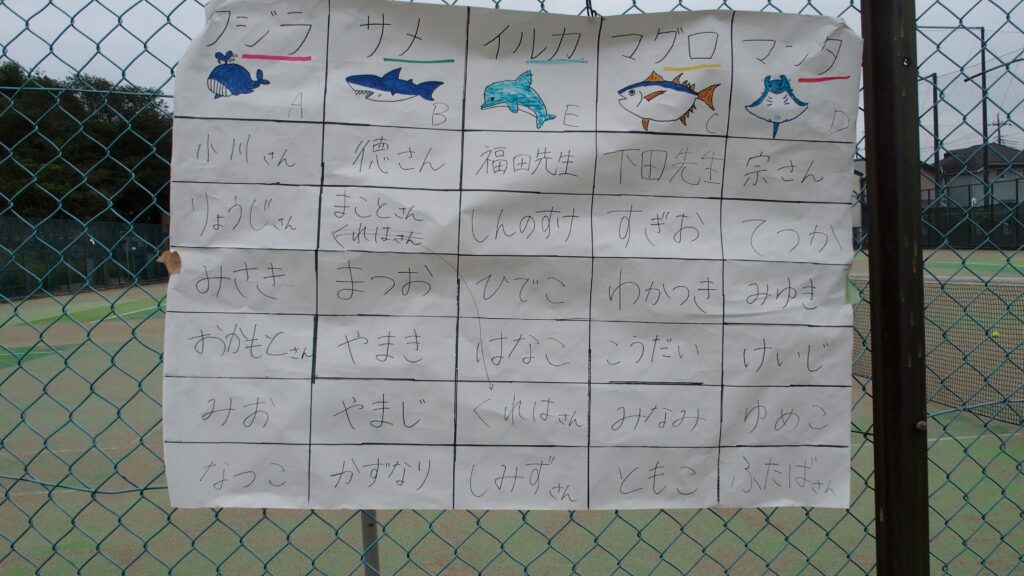 クジラ サメ イルカ マグロ マンタ
A B E C D
小川さん 徳さん 福田先生 下田先生 宗さん
りょうじさん まことさん しんのすけ すぎお てつか
くれはさん
みさき まつお ひでこ わかつき みゆき
おかもとさん やまき はなこ こうだい けいじ
みお やまじ くれはさん みなみ ゆめこ
なつこ かずなり しみずさん ともこ ふたばさん